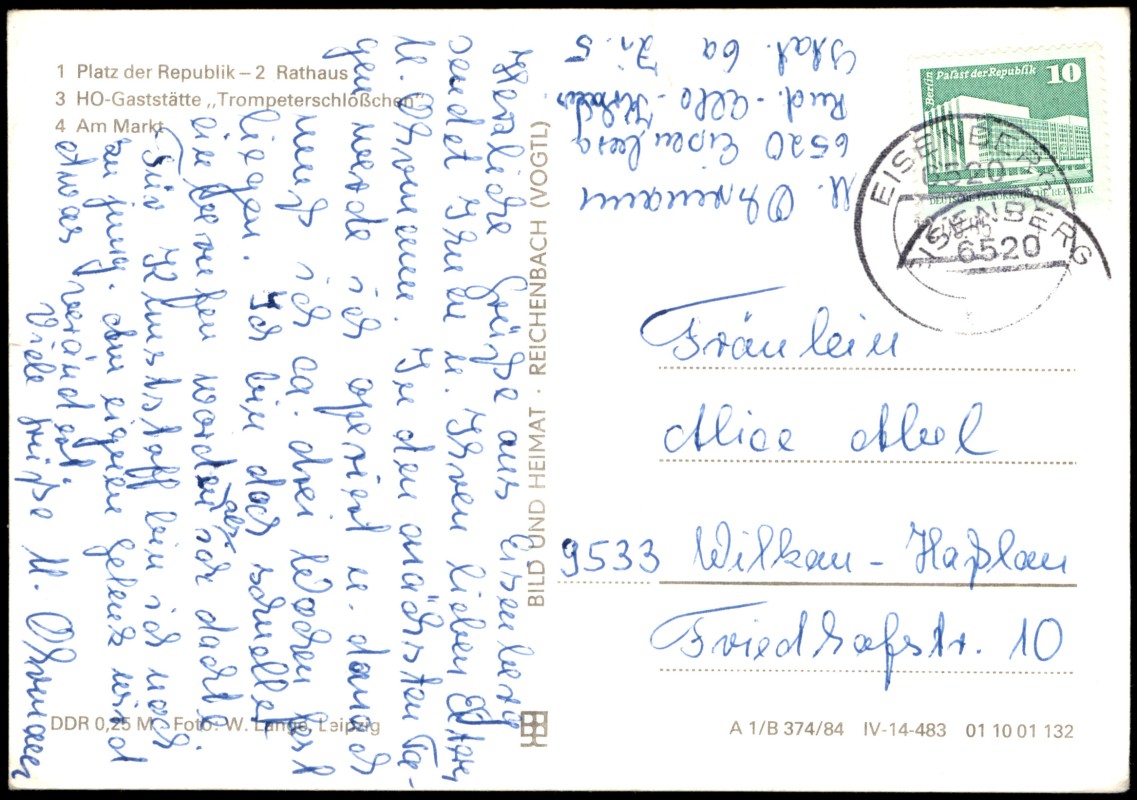 1 Platz der Republik – 2 Rathaus
3 HO-Gaststätte „Trompeterschlößchen"
4 Am Markt
Herzliche Grüße aus Eisenberg
sendet Ihnen u. Ihren lieben Eltern
U. Ohnmann. In den nächsten Ta-
gen werde ich operiert u. danach
muß ich ca. drei Wochen fest
liegen. Ich bin doch schneller
einberufen worden als ich dachte.
Für Kunststoff bin ich noch
zu jung. Am eignen Gelenk wird
etwas verändert.
Viele Grüße U.
BILD UND HEIMAT · REICHENBACH (VOGTL)
U.
6520 Eisenberg
Rud.-Elle-Krhs.
Stat. 6a Zi. 5
Berlin Palast der Republik 10
DEUTSCHE DEMOKRATISCHE REPUBLIK
EISENBERG
6520
EISENBERG
6520
Fräulein
Alice Abel
9533 Wilkau-Haßlau
Friedhofstr. 10
DDR 0,25 M Foto: W. Lange, Leipzig
A 1/B 374/84 IV-14-483 01 10 01 132